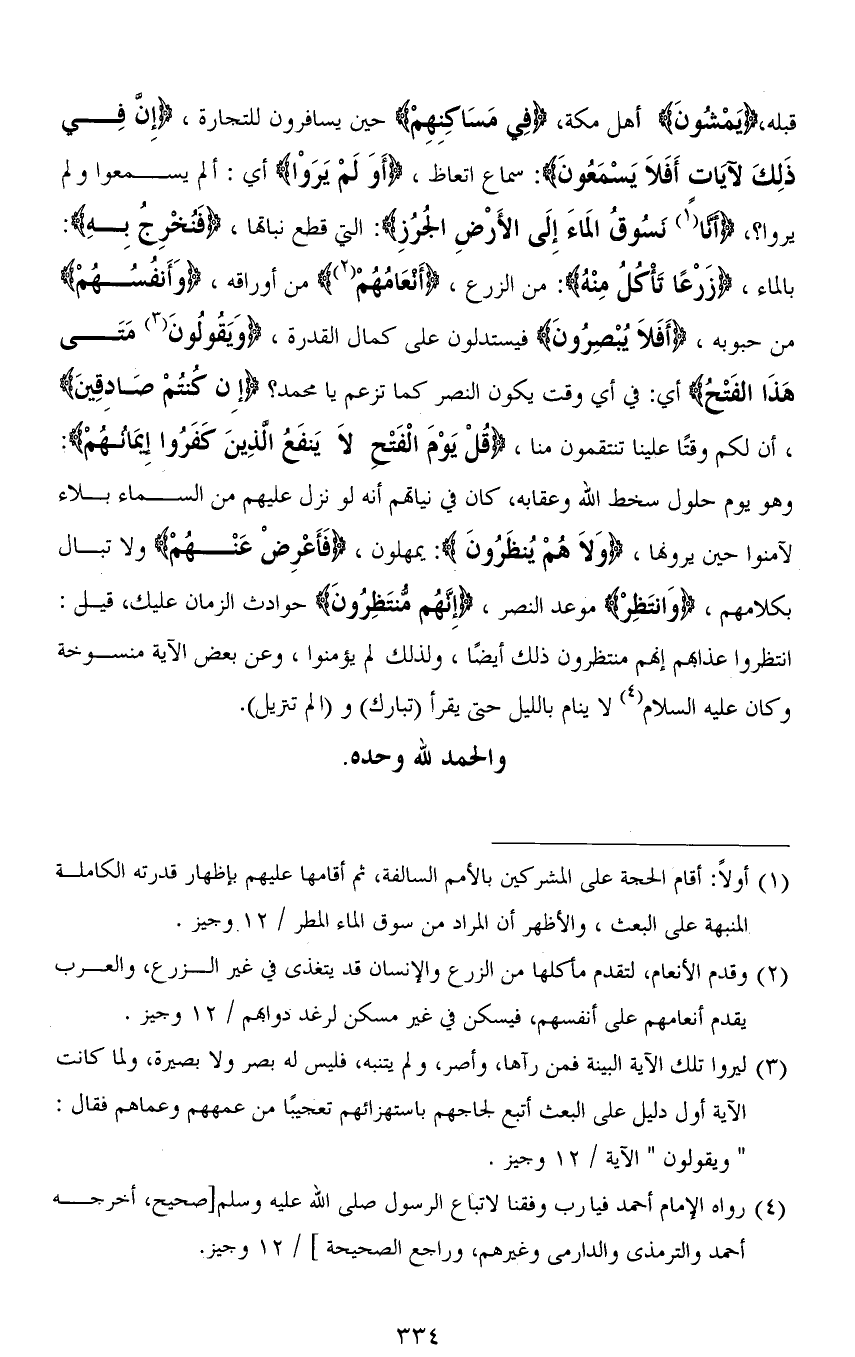 قبله،﴿يَمْشُونَ﴾ أهل مكة، ﴿فِي مَسَاكِنِهِمْ﴾ حين يسافرون للتجارة ، ﴿إِنَّ فِــــي
ذَلِكَ لآيَات أَفَلاَ يَسْمَعُونَ﴾: سماع اتعاظ ، ﴿أَوَ لَمْ يَرَوْا﴾ أي : ألم يســــمعوا و لم
يروا؟، ﴿أَنَّا(١) نَسُوقُ الْمَاءَ إِلَى الأَرْضِ الْجُرُزِ﴾: التي قطع نباتها ، ﴿فَنُخْرِجُ بِـــهِ﴾:
بالماء ، ﴿زَرْعًا تَأْكُلُ مِنْهُ﴾: من الزرع ، ﴿أَنْعَامُهُمْ(٢)﴾ من أوراقه ، ﴿وَأَنفُسُـــهُمْ﴾
من حبوبه ، ﴿أَفَلاَ يُبْصِرُونَ﴾ فيستدلون على كمال القدرة ، ﴿وَيَقُولُونَ(٣) مَتَـــى
هَذَا الفَتْحُ﴾ أي: في أي وقت يكون النصر كما تزعم يا محمد؟ ﴿إِن كُنتُمْ صَـادِقِينَ﴾
، أن لكم وقتًا علينا تنتقمون منا ، ﴿قُلْ يَوْمَ الْفَتْحِ لاَ يَنفَعُ الَّذِينَ كَفَرُوا إِيمَانُـهُمْ﴾:
وهو يوم حلول سخط الله وعقابه، كان في نياتهم أنه لو نزل عليهم من الســـماء بـــلاء
لآمنوا حين يرونها ، ﴿وَلاَ هُمْ يُنظَرُونَ ﴾: يمهلون ، ﴿فَأَعْرِضْ عَنْـــهُمْ﴾ ولا تبـــال
بكلامهم ، ﴿وَانتَظِرْ﴾ موعد النصر ، ﴿إِنَّهُم مُّنتَظِرُونَ﴾ حوادث الزمان عليك، قيـل :
انتظروا عذابهم إنهم منتظرون ذلك أيضًا ، ولذلك لم يؤمنوا ، وعن بعض الآية منســـوخة
وكان عليه السلام(٤) لا ينام بالليل حتى يقرأ (تبارك) و (الم تنزيل).
والحمد لله وحده.
(١) أولاً: أقام الحجة على المشركين بالأمم السالفة، ثم أقامها عليهم بإظهار قدرته الكاملـــة
المنبهة على البعث ، والأظهر أن المراد من سوق الماء المطر / ١٢ وجيز .
(٢) وقدم الأنعام، لتقدم مأكلها من الزرع والإنسان قد يتغذى في غير الـــزرع، والعـــرب
يقدم أنعامهم على أنفسهم، فيسكن في غير مسكن لرغد دوابهم / ١٢ وجيز .
(٣) ليروا تلك الآية البينة فمن رآها، وأصر، و لم يتنبه، فليس له بصر ولا بصيرة، ولما كانت
الآية أول دليل على البعث أتبع لجاجهم باستهزائهم تعجيبًا من عمههم وعماهم فقال :
" ويقولون " الآية / ١٢ وجيز .
(٤) رواه الإمام أحمد فيا رب وفقنا لاتباع الرسول صلى الله عليه وسلم[صحيح، أخرجـــه
أحمد والترمذى والدارمى وغيرهم، وراجع الصحيحة ] / ١٢ وجيز.
٣٣٤